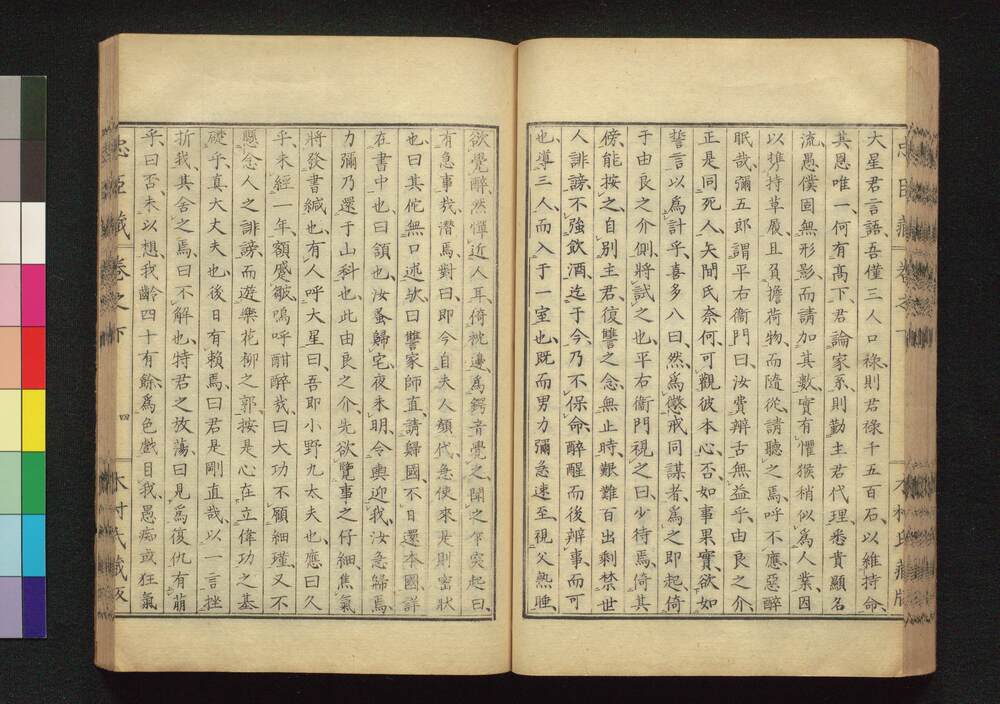 大星君言語、吾僅三人口祿、則君祿千五百石、以維持命、
其恩唯一、何有髙下、君論家系、則勤主君代理、悉貴顯名
流、愚僕固無形影、而請加其數、實有懼、猴稍似爲人業、因
以擠持草履且負擔荷物而隨從、請聽之焉、呼不應、惡醉
眠哉、彌五郎謂平右衞門曰、汝費辨舌無益乎、由良之介
正是同死人、矢間氏奈何、可觀彼本心否、如事果實、欲如
誓言以爲計乎、喜多八曰、然、爲懲戒同謀者爲之、即起倚
于由良之介側、將試之也、平右衞門視之曰、少待焉、倚其
傍、能按之、自別主君、復讐之念、無止時、艱難百出、剩禁世
人誹謗、不強飲酒、迄于今、乃不保命、醉醒而後辨事而可
也、導三人、而入于一室也、既而男力彌急速至、視父熟睡、
欲覺醉、然憚近人耳、倚枕邊、爲鍔音覺之、聞之乍突起曰、
有急事哉、潛焉、對曰、即今自夫人顏代、急使來、是則密狀
也、曰、其佗無口述欤、曰、讐家師直、請歸國、不日還本國、詳
在書中也、曰、領也、汝蚤歸宅、夜未明、令輿迎我、汝急歸焉
力彌乃還于山科也、此由良之介、先欲覽事之仔細、焦氣
將發書緘也、有人呼大星曰、吾即小野九太夫也、應曰、久
乎、未經一年、額蹙皺、嗚呼酣醉哉、曰、大功不顧細瑾、又不
懸念人之誹謗、而遊樂花柳之郭、按是心在立偉功之基
礎乎、真大丈夫也、後日有賴焉、曰、君是剛直哉、以一言挫
折我、其舍之焉、曰、不解也、特君之放蕩、曰、見爲復仇有萠
乎、曰、否、未以想、我齡四十有餘、爲色戲、目我、愚痴或狂氣
忠臣藏 卷之下
四
木村氏藏版
忠臣藏 卷之下
木村氏藏版